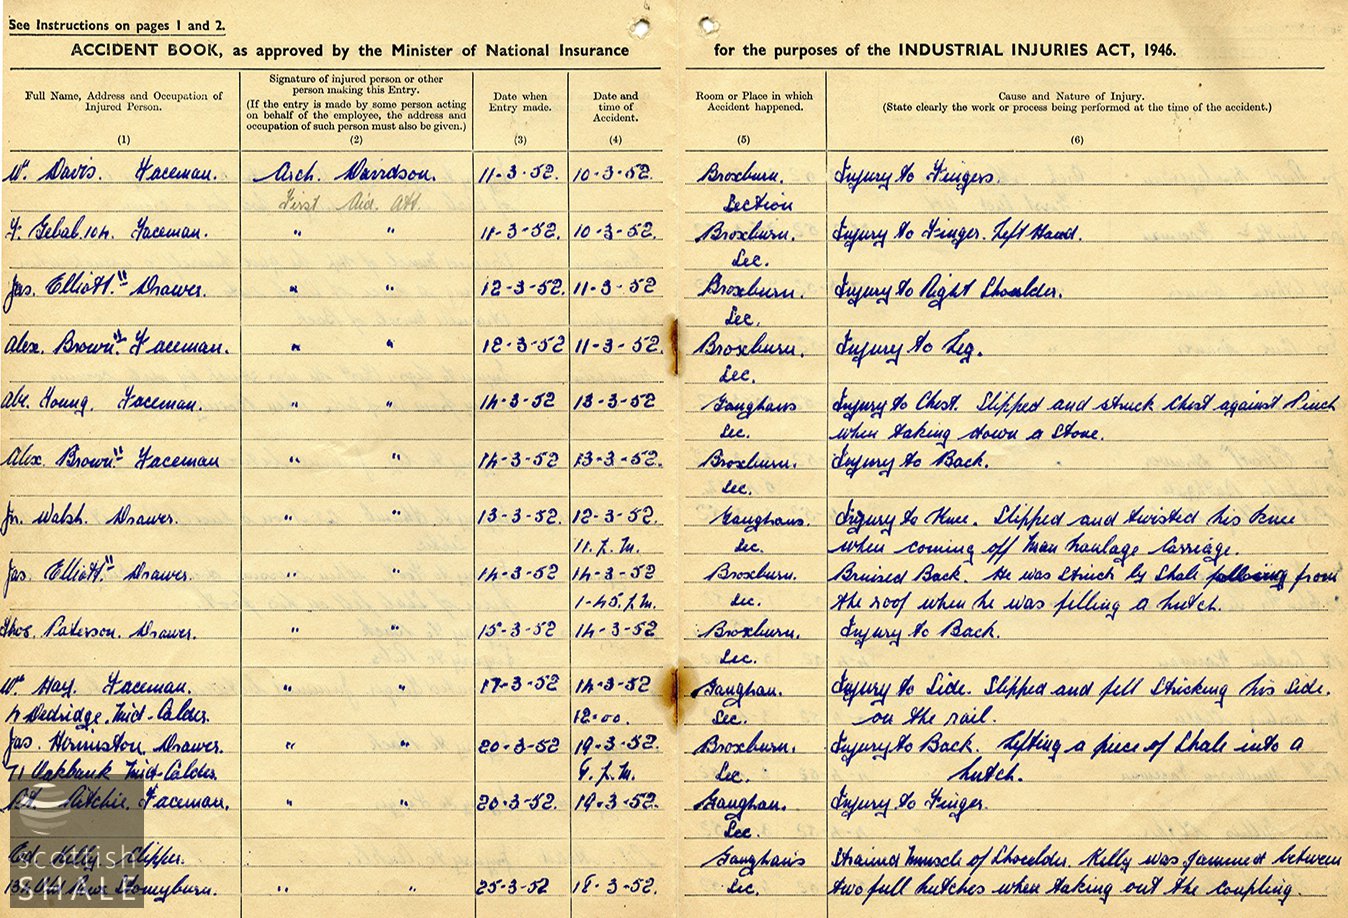 See Instructions on pages 1 and 2.
ACCIDENT BOOK, as approved by the Minister of National Insurance for the purposes of the INDUSTRIAL INJURIES ACT, 1946.
Full Name, Address and Occupation of Injured Person. (1)
Signature of injured person or other person making this Entry. (If the entry is made by some person acting on behalf of the employee, the address and occupation of such person must also be given.) (2)
Date when Entry made. (3)
Date and time of Accident. (4)
Room or Place in which Accident happened. (5)
Cause and Nature of Injury. (State clearly the work or process being performed at the time of the accident.) (6)
Wm Davis. Faceman. Arch. Davidson. 11-3-52. 10-3-52. Broxburn. Injury to Fingers.
First Aid. Att. Section
Faceman. " " 11-3-52. 10-3-52. Broxburn. Injury to Finger. Left Hand.
Sec.
Jas. Elliott. " Drawer. " " 12-3-52. 11-3-52 Broxburn. Injury to Right Shoulder.
Sec.
Alex. Brown. " Faceman. " " 12-3-52 11-3-52. Broxburn. Injury to Leg.
Sec.
Abe. Young. Faceman. " " 14-3-52 13-3-52 Gaughans Injury to Chest. Slipped and struck Chest against Pinch
Sec. when taking down a Stone.
Alex. Brown " Faceman " " 14-3-52 13-3-52. Broxburn. Injury to Back.
Sec.
Walsh. Drawer. " " 13-3-52. 12-3-52. Gaughans. Injury to Knee. Slipped and twisted his Knee
11. P.M. Sec. when coming off Man haulage Carriage.
Jas. Elliott. " Drawer. " " 14-3-52 14-3-52 Broxburn. Bruised Back. He was Struck by Shale falling from
1-45. P.M. Sec. the roof when he was filling a hutch.
Thos. Paterson. Drawer. " " 15-3-52 14-3-52 Broxburn. Injury to Back.
Sec.
Wm Hay. Faceman. " " 17-3-52 14-3-52 Gaughan. Injury to Side. Slipped and fell Stricking his Side.
Dedridge. Mid-Calder. 12-00. Sec. on the rail.
Jas. Hirmiston. Drawer. " " 20-3-52 19-3-52. Broxburn. Injury to Back. Lifting a piece of Shale into a
71 Oakbank Mid-Calder P.M. Sec. hutch.
Ritchie. Faceman. " " 20-3-52 19-3-52. Gaughan. Injury to Finger.
Sec.
Ed. Kelly. Clipper. Gaughan's Strained Muscle of Shoulder. Kelly was Jammed between
Stoneyburn. " " 25-3-52 18-3-52. Sec. two full hutches when taking out the Coupling.
scottish
SHALE